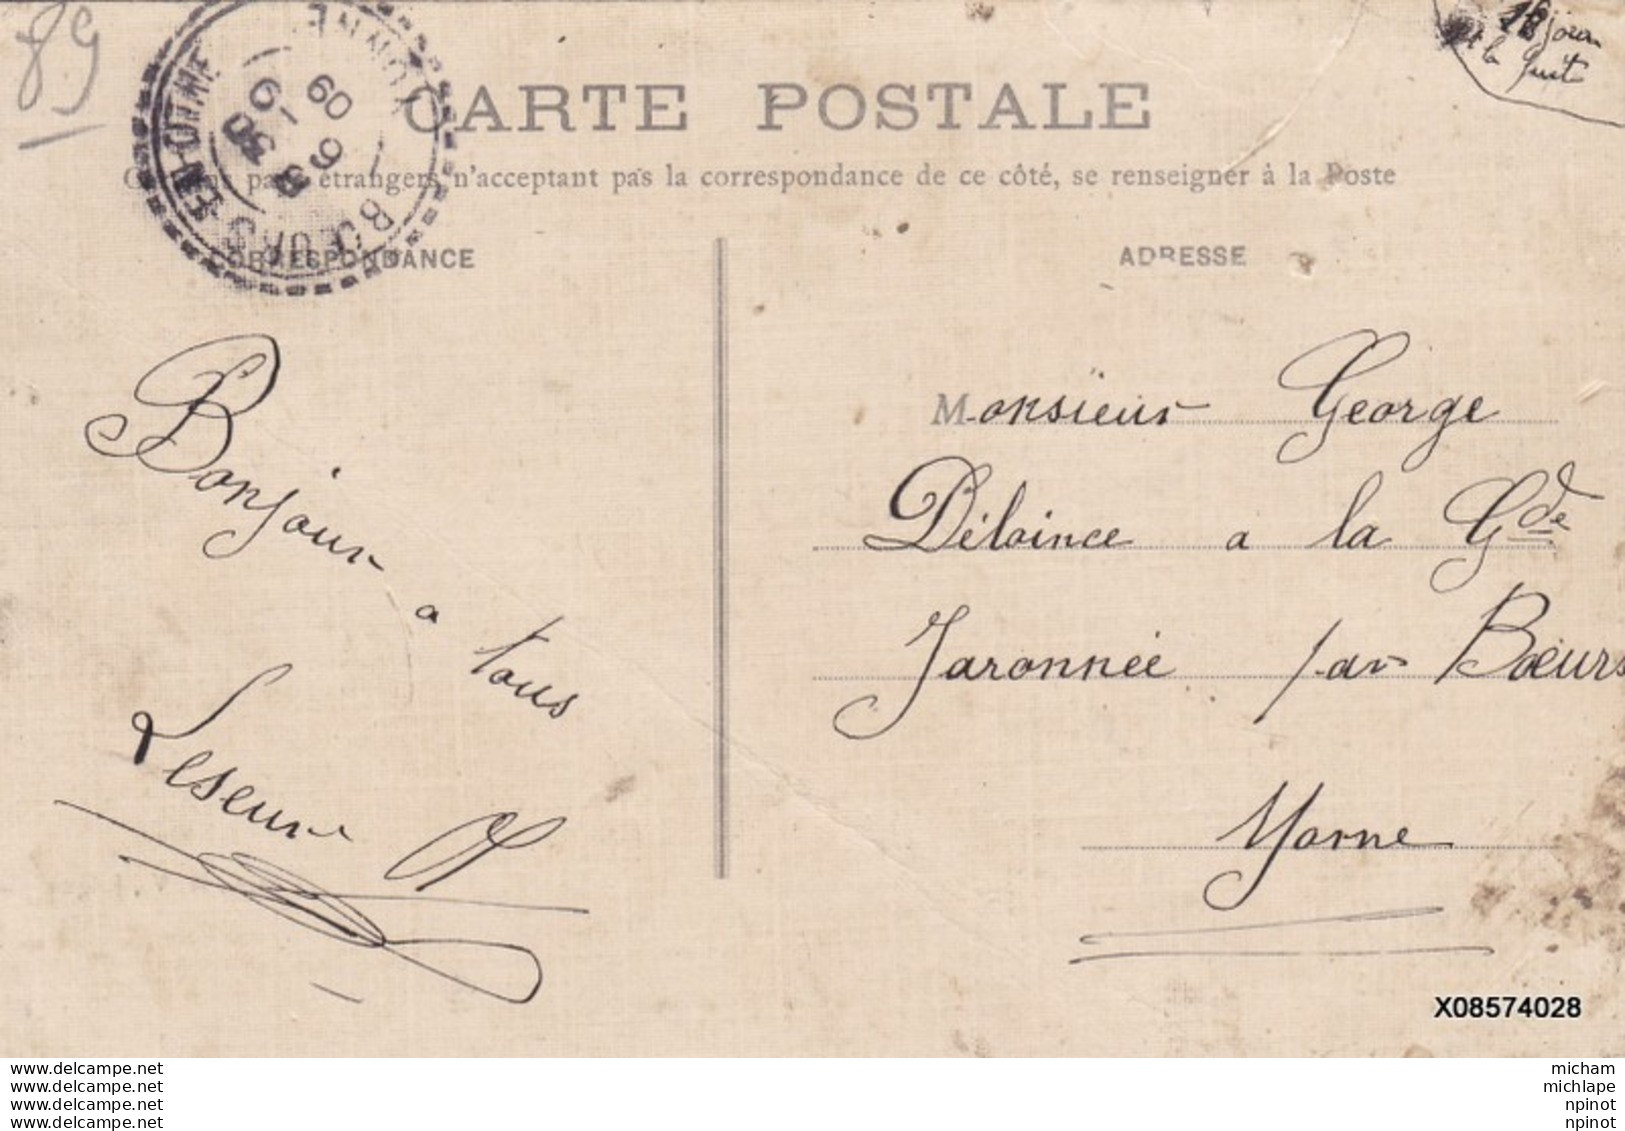 89
CARTE POSTALE
pays étrangers n'acceptant pas la correspondance de ce côté, se renseigner à la Poste
CORRESPONDANCE
ADRESSE
BŒURS-EN-OTHE
YONNE
9 -6
09
Bonjour
a tous
Leseur
Monsieur George
Déloince a la Gde
Jaronnée par Bœurs
Yonne
X08574028
www.delcampe.net
www.delcampe.net
www.delcampe.net
www.delcampe.net
micham
michlape
npinot
npinot